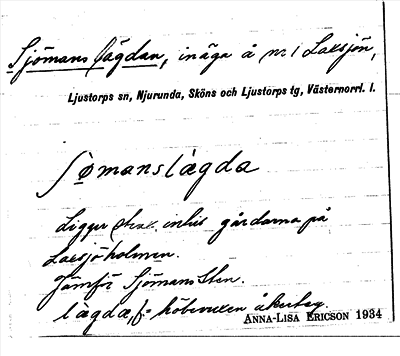 Sjömans lägdan, inäga å nr 1 Laksjön,
Ljustorps sn, Njurunda, Sköns och Ljustorps tg, Västernorrl. l.
Sømanslàgda
Ligger strax intill gårdarna på
Laksjöholmen.
Jämför Sjömans Sten.
làgda, f. = höbevuxen åkerteg.
ANNA-LISA ERICSON 1934